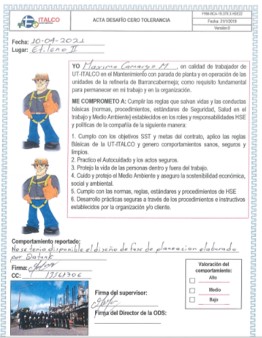 ITALCO
ACTA DESAFÍO CERO TOLERANCIA
Fecha: 31/1/2019
Versión 0
Fecha: 20-04-2022
Lugar: Etileno II
YO Maximo Camargo M, en calidad de trabajador de
UT-ITALCO en el Mantenimiento con parada de planta y en operación de las
unidades de la refinería de Barrancabermeja; como requisito fundamental
para permanecer en mi trabajo y en la organización.
ME COMPROMETO A: Cumplir las reglas que salvan vidas y las conductas
básicas (normas, procedimientos, estándares de Seguridad, Salud en el
trabajo y Medio Ambiente) establecidos en los roles y responsabilidades HSE
y políticas de la compañía de la siguiente manera:
1. Cumplo con los objetivos SST y metas del contrato, aplico las reglas
Básicas de la UT-ITALCO y genero comportamientos sanos, seguros y
limpios.
2. Practico el Autocuidado y los actos seguros.
3. Protejo la vida de las personas dentro y fuera del trabajo.
4. Cuido y protejo el Medio Ambiente y aseguro la sostenibilidad económica,
social y ambiental.
5. Cumplo con las normas, reglas, estándares y procedimientos de HSE
6. Desarrollo prácticas seguras a través de los procedimientos e instructivos
establecidos por la organización y/o cliente.
Comportamiento reportado:
No se tenia disponible el diseño de fase de planeacion elaborado
por
Firma:
CC:
Firma del supervisor:
Firma del Director de la ODS:
Valoración del
comportamiento:
Alto
Medio
Bajo